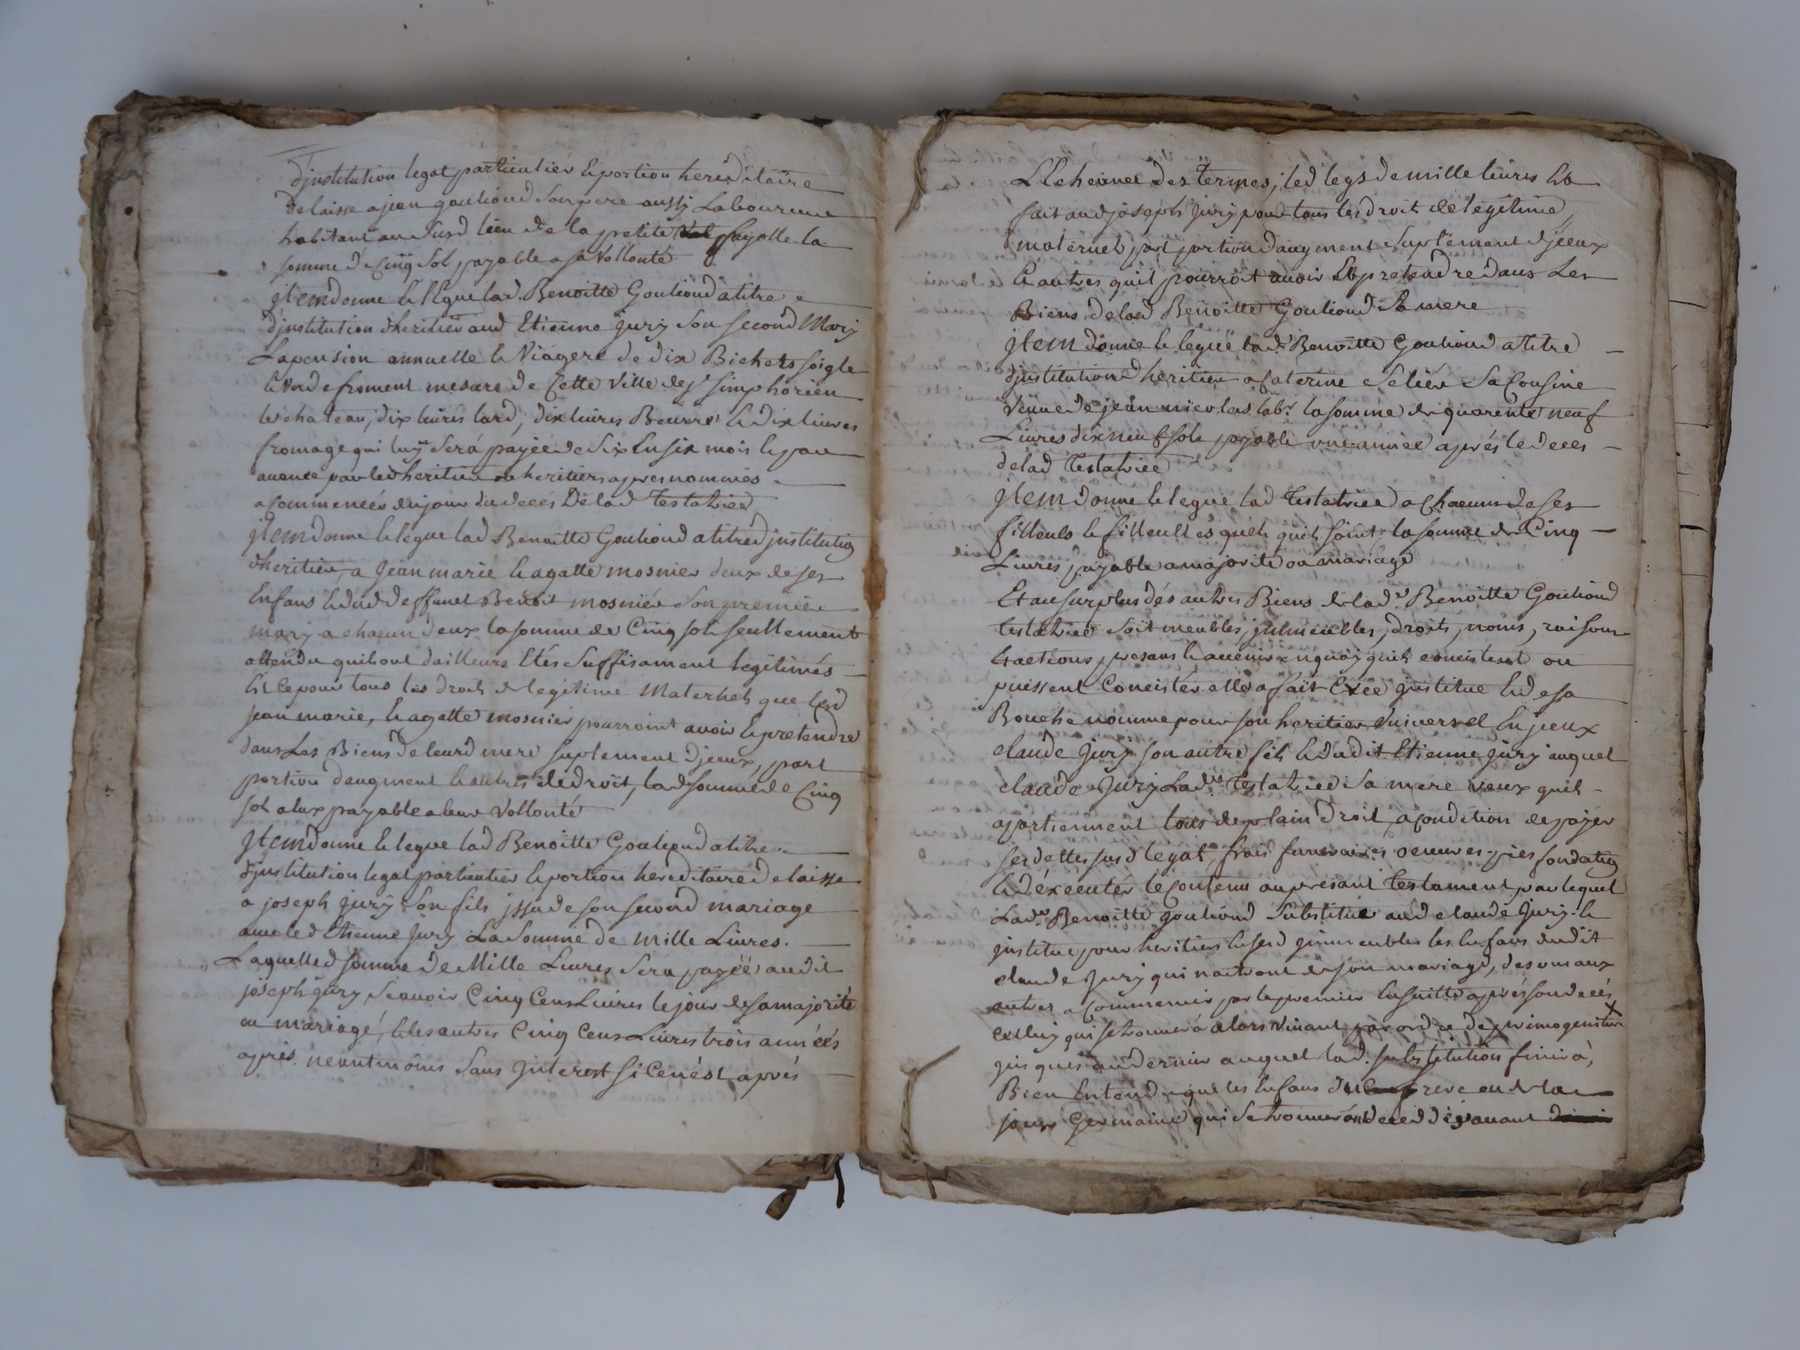 d'jnstitution legat particulier & portion hereditaire
delaisse a jean goutioud son pere aussj Laboureur
habitant au Susd lieu de la petite fayolle la
somme de Cinq Sol payable a sa Vollonté
jtem donne & legue lad. Benoitte Goutioud a titre
d'jnstitution d'heritier aud Etienne jury son second Mary
La pension annuelle & Viagere de dix Bichets soigle
& un de froment mesure de Cette Ville de St Simphorien
le chateau, dix livres lard, dix livres Beurre & dix livres
fromage qui luy Sera payée de Six En six mois & par
avance par led heritier ou heritiers apres nommés
a Commencer du jour du decés De lad Testatrice
jtem donne & legue lad Benoitte Goutioud a titre d'jnstitution
d'heritier, a Jean marie & agatte mosnier deux de ses
Enfans & dud deffunct Benoit mosnier son premier
mary a chacun d'eux la somme de Cinq sols seullement
attendu quil ont dailleurs Etés Suffisament legitimés
Et Ce pour tous les droits de legitime Maternels que lesd
jean marie, & agatte mosnier pourroint avoir & pretendre
dans Les Biens de leurd mere suplement d'jceux, part
portion d'augment & autres de droit, lad somme de Cinq
sol a Eux payable a leur Vollonté
jtem donne & legue lad Benoitte Goutioud a titre
d'jnstitution legat particulier & portion hereditaire delaisse
a joseph jury son fils jssu de son second mariage
avec led Etienne jury La Somme de Mille Livres.
Laquelle d somme de Mille Livres Sera payée audit
joseph jury Scavoir Cinq Cens Livres le jour de sa majorité
ou mariagé, & les autres Cinq Cens Livres trois années
aprés neantmoins Sans jnterest si Ce n'est aprés
L'Echeance des termes, led legs de mille livres Est
fait aud joseph jury pour tous les droits de legitime
maternel, part portion d'augment suplement d'jceux
& autres quil pourroit avoir & pretendre dans Les
Biens de lad Benoitte Goutioud Sa mere
jtem donne & legue lad Benoitte Goutioud a titre
d'jnstitution d'heritier a Caterine Selier Sa Cousine
veuve de jean nicolas labr. la somme de quarente neuf
Livres dix neuf sols payable une année aprés le decés
de lad Testatrice
jtem donne & legue lad Testatrice a Chacun de ses
filleuls & filleulles quels quils soint la somme de Cinq
Livres payable a majorité ou mariage
Et au Surplus des autres Biens de lad Benoitte Goutioud
testatrice soit meubles, jmmeubles, droits, noms, raisons
Et actions presans & avenir en quoy quils concistent ou
puissent Concister elle a fait Créé jnstitue & de sa
Bouche nomme pour son heritier universel En jceux
claude jury son autre fils & dudit Etienne jury auquel
claude jury Lad Testatrice sa mere veux quils
apartiennent tous de plain droit, a condition de payer
ses dettes susd legat, frais funeraires oeuvres pies fondation
& d'éxecuter le Contenu au present Testament par lequel
Lad Benoitte goutioud Substitue aud claude jury &
jnstitue pour heritiers Esd jmmeubles les Enfans dudit
claude jury qui naitront de son mariage, des uns aux
autres a Commencer par le premier Ensuitte aprés son decés
Celluy qui se trouvera alors vivant par ordre de primogeniture
jusques au dernier auquel lad. Substitution finira,
Bien Entendu que les Enfans du frere ou de la
soeur Germaine qui se trouveront decedé avant